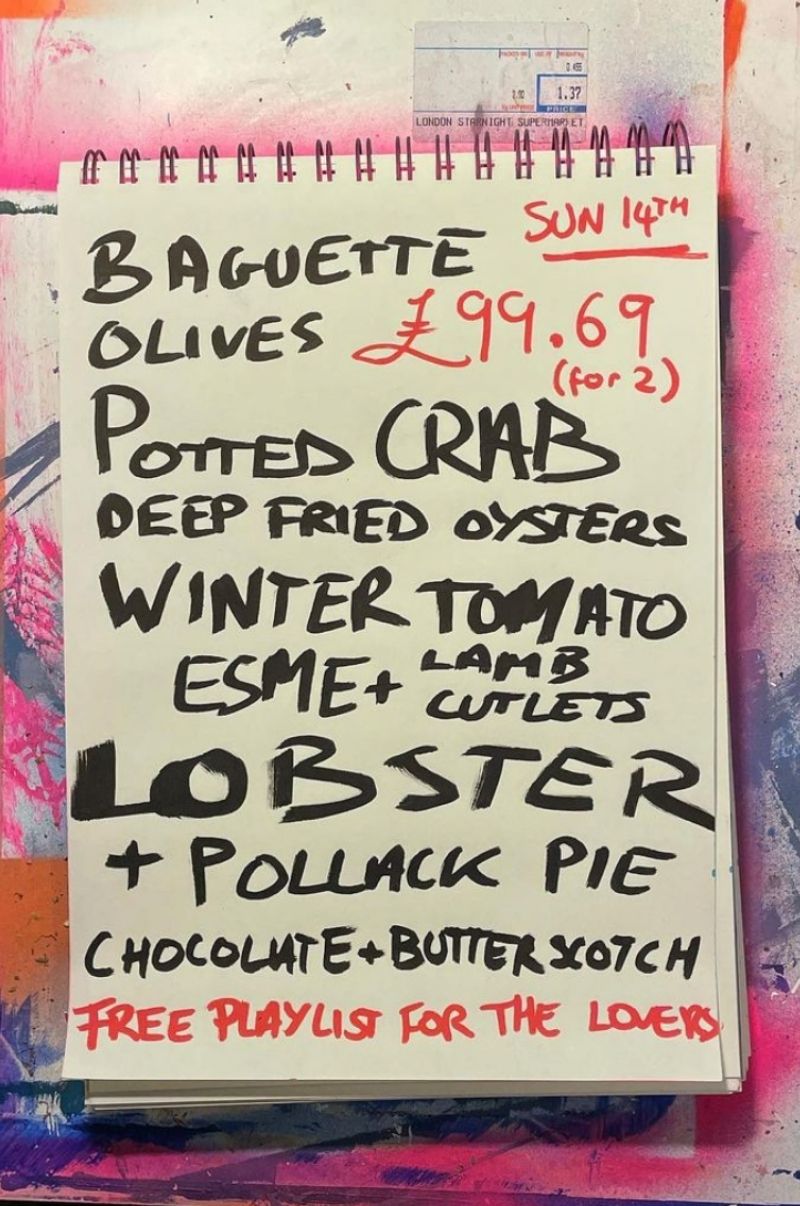 0.455
1.37
PRICE
LONDON STARNIGHT SUPERMARKET
SUN 14TH
BAGUETTE
OLIVES £99.69
(for 2)
POTTED CRAB
DEEP FRIED OYSTERS
WINTER TOMATO
ESME + LAMB
CUTLETS
LOBSTER
+ POLLACK PIE
CHOCOLATE + BUTTERSCOTCH
FREE PLAYLIST FOR THE LOVERS